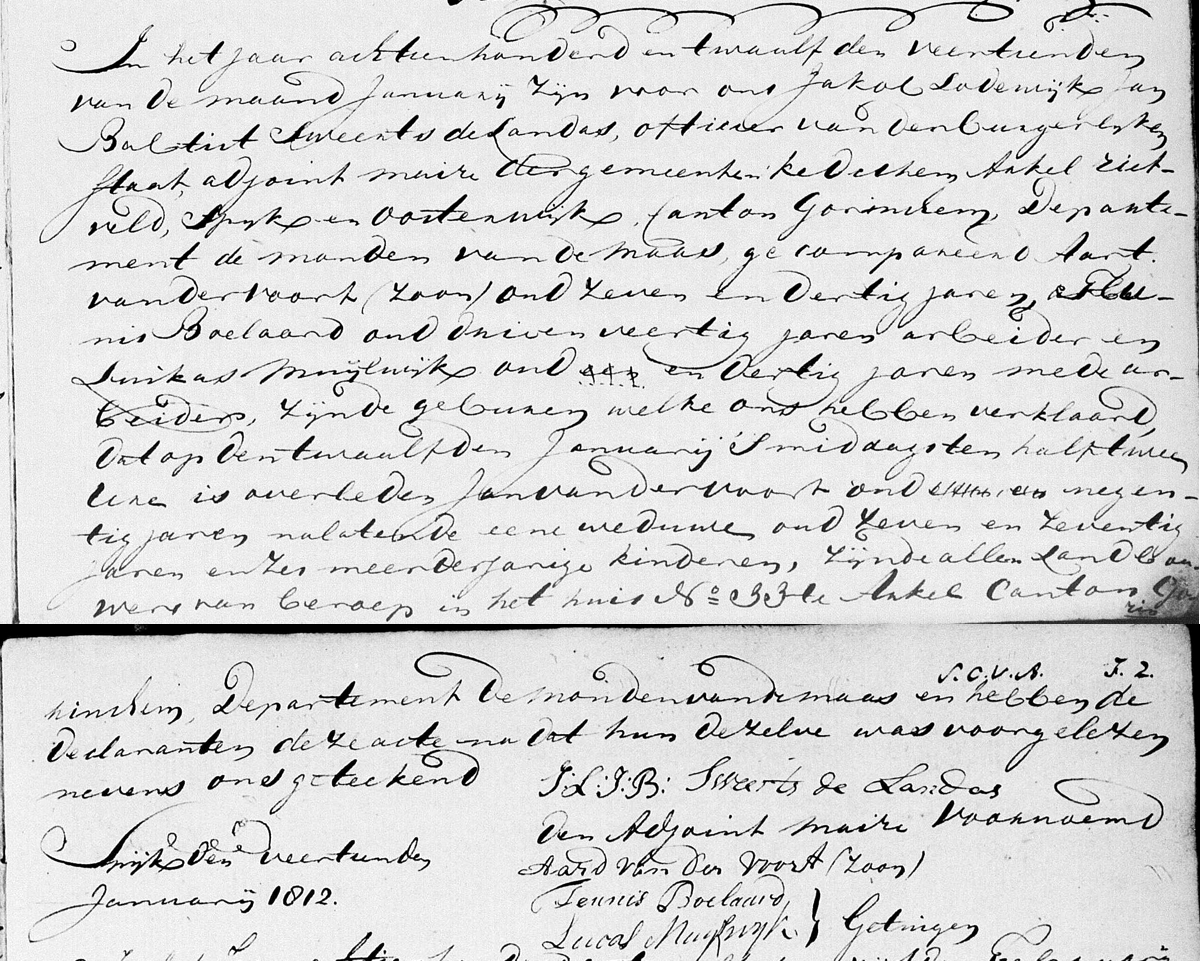 In het jaar achtienhonderd en twaalf den veertienden
van de maand January zijn voor ons Jakob Lodewijk Jan
Babtist Sweerts de Landas, officier van den burgerlyken
staat, adjoint maire der gemeenten kedichem Arkel riet-
veld, Spijk en Oosterwijk, Canton Gorinchem, Departe-
ment de monden van de Maas, gecompareerd Aart
van der voort (zoon) oud zeven en dertig jaren, Teu-
nis Boelaard oud drie en veertig jaren arbeider en
Luikas Muijlwijk oud en dertig jaren mede ar-
beider, zijnde geburen welke ons hebben verklaard,
dat op den twaalfden January 's middags ten half twee
ure is overleden Jan van der voort oud negen-
tig jaren nalatende eene weduwe oud zeven en zeventig
jaren en zes meerderjarige kinderen, zijnde allen Landbou-
wers van beroep in het huis No 33 te Arkel Canton Go-
rin
S.C.V.A. F. 2.
hinchem, Departement De monden van de maas en hebben de
Declaranten deze acte na dat hun dezelve was voorgelezen
nevens ons geteekend
J: L: J: B: Sweerts de Landas
den Adjoint maire voornoemd
Spijk den veertienden
January 1812.
Aard van der voort (zoon)
Teunis Boelaard
Lucas Muijlwijk } Getuigen